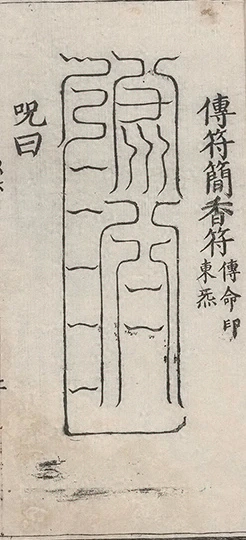 傳符簡香符
傳命印
東炁
呪曰